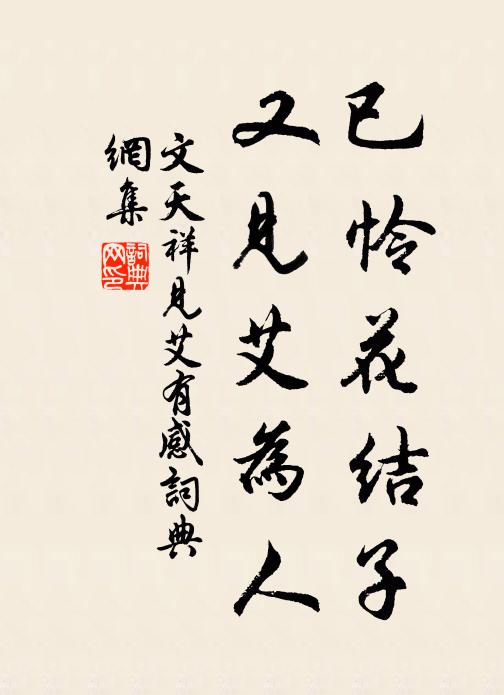 已怜花結子
又見艾為人
文天祥見艾有感詞典
網集
詞典
网印